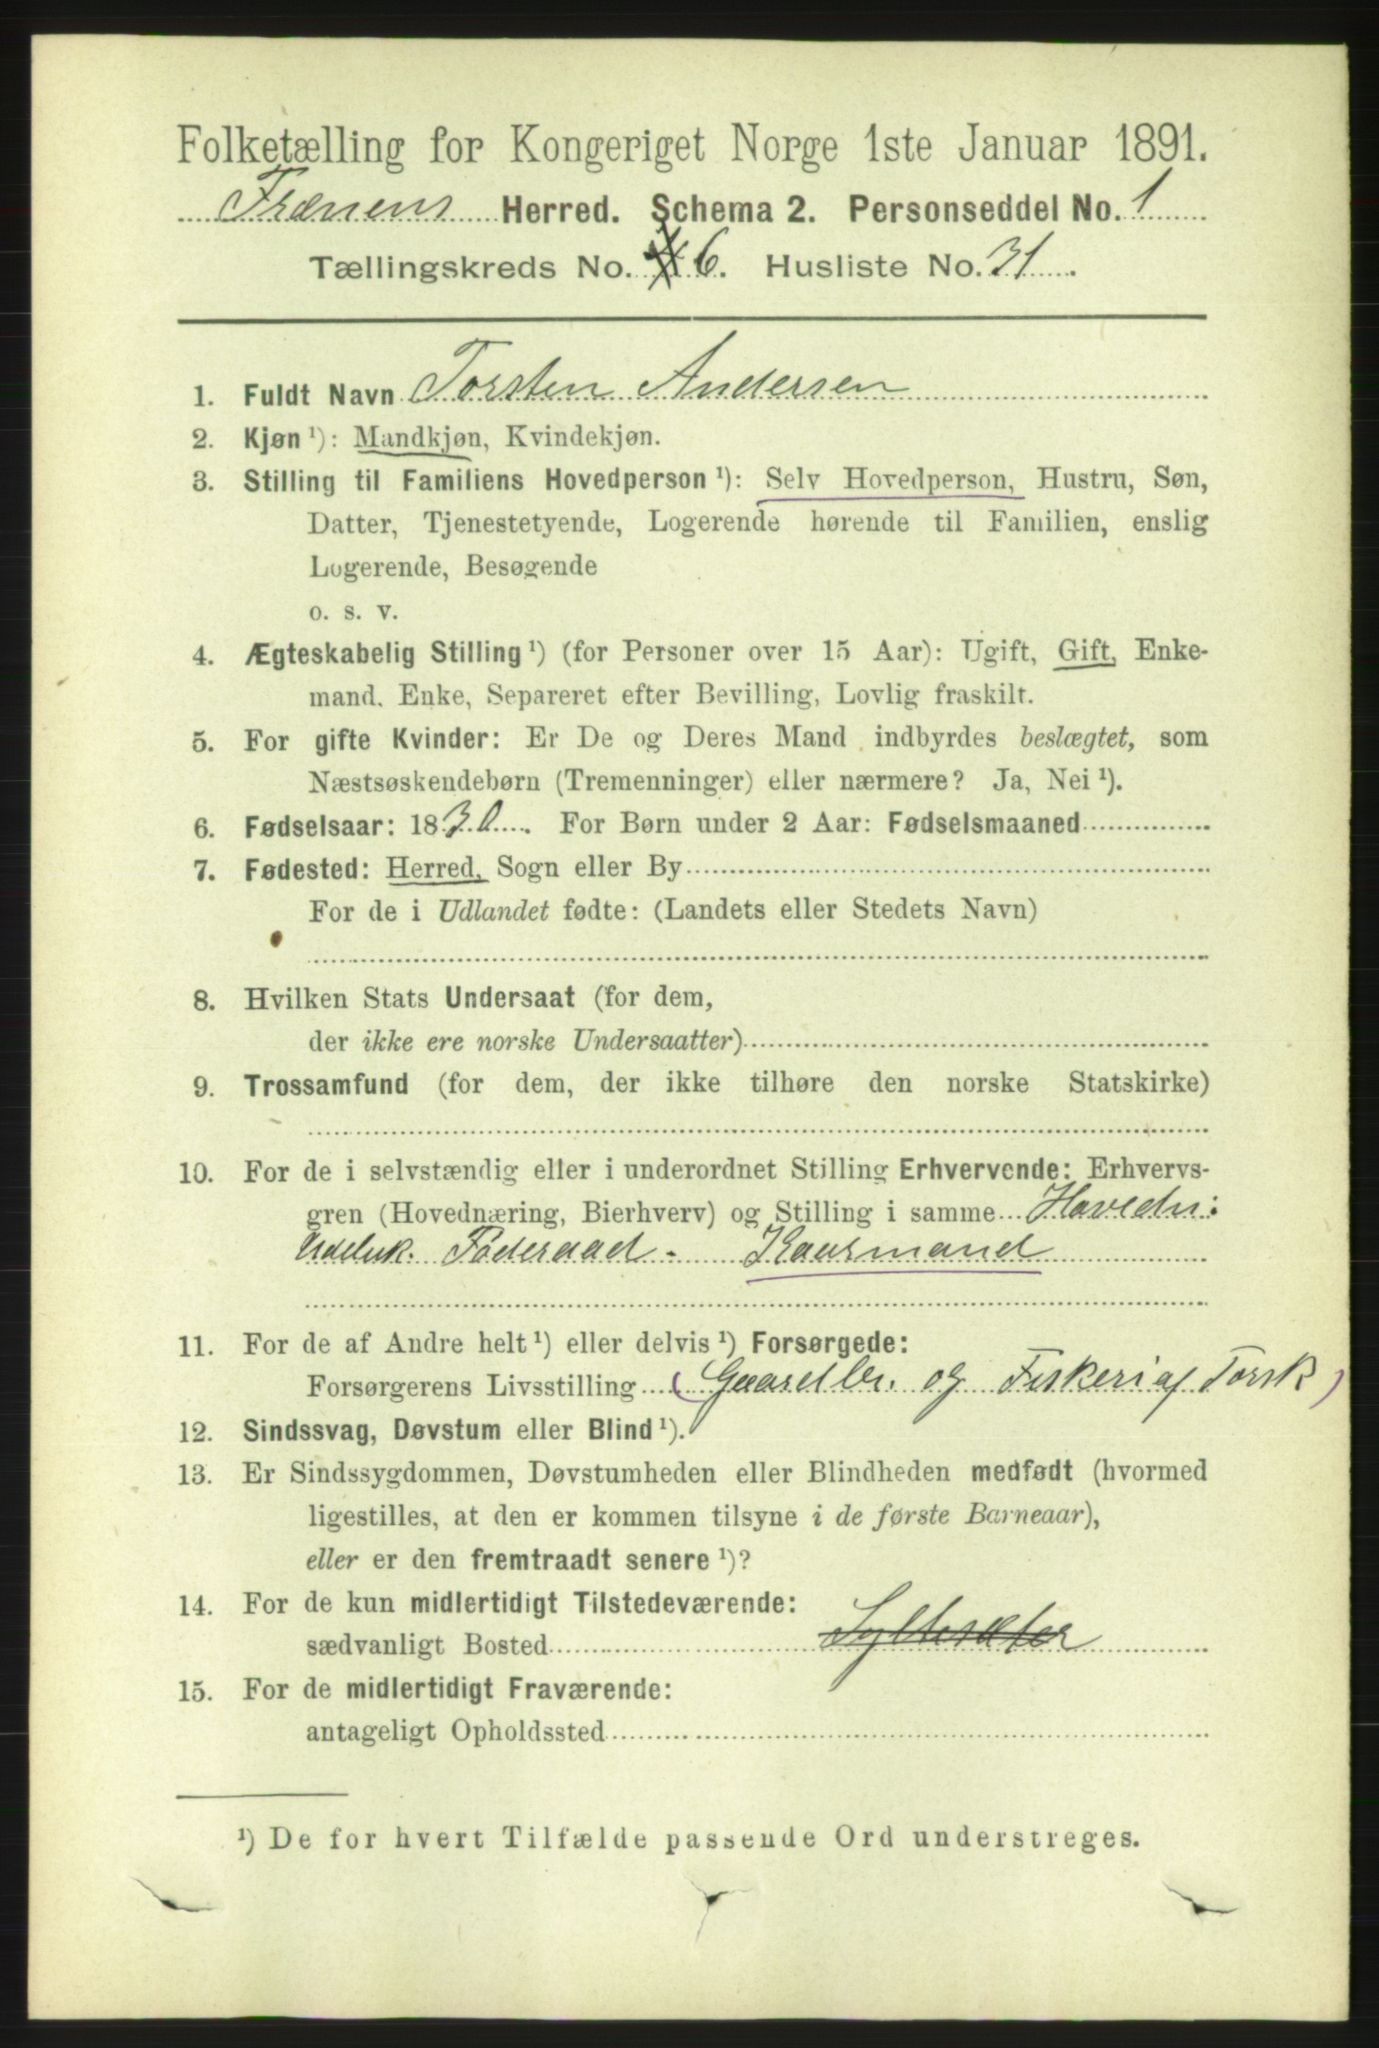 Folketælling for Kongeriget Norge 1ste Januar 1891.
Frænens Herred. Schema 2. Personseddel No. 1
Tællingskreds No. 6. Husliste No. 31.
1. Fuldt Navn Torsten Andersen
2. Kjøn ¹): Mandkjøn, Kvindekjøn.
3. Stilling til Familiens Hovedperson ¹): Selv Hovedperson, Hustru, Søn,
Datter, Tjenestetyende, Logerende hørende til Familien, enslig
Logerende, Besøgende
o. s. v.
4. Ægteskabelig Stilling ¹) (for Personer over 15 Aar): Ugift, Gift, Enke-
mand. Enke, Separeret efter Bevilling, Lovlig fraskilt.
5. For gifte Kvinder: Er De og Deres Mand indbyrdes beslægtet, som
Næstsøskendebørn (Tremenninger) eller nærmere? Ja, Nei ¹).
6. Fødselsaar: 1830. For Børn under 2 Aar: Fødselsmaaned
7. Fødested: Herred, Sogn eller By
For de i Udlandet fødte: (Landets eller Stedets Navn)
8. Hvilken Stats Undersaat (for dem,
der ikke ere norske Undersaatter)
9. Trossamfund (for dem, der ikke tilhøre den norske Statskirke)
10. For de i selvstændig eller i underordnet Stilling Erhvervende: Erhvervs-
gren (Hovednæring, Bierhverv) og Stilling i samme Hovedn:
Føderaad - Kaarmand
11. For de af Andre helt ¹) eller delvis ¹) Forsørgede:
Forsørgerens Livsstilling (Gaardbr. og Fiskeri af Torsk)
12. Sindssvag, Døvstum eller Blind ¹).
13. Er Sindssygdommen, Døvstumheden eller Blindheden medfødt (hvormed
ligestilles, at den er kommen tilsyne i de første Barneaar),
eller er den fremtraadt senere ¹)?
14. For de kun midlertidigt Tilstedeværende:
sædvanligt Bosted Syltesæter
15. For de midlertidigt Fraværende:
antageligt Opholdssted
¹) De for hvert Tilfælde passende Ord understreges.